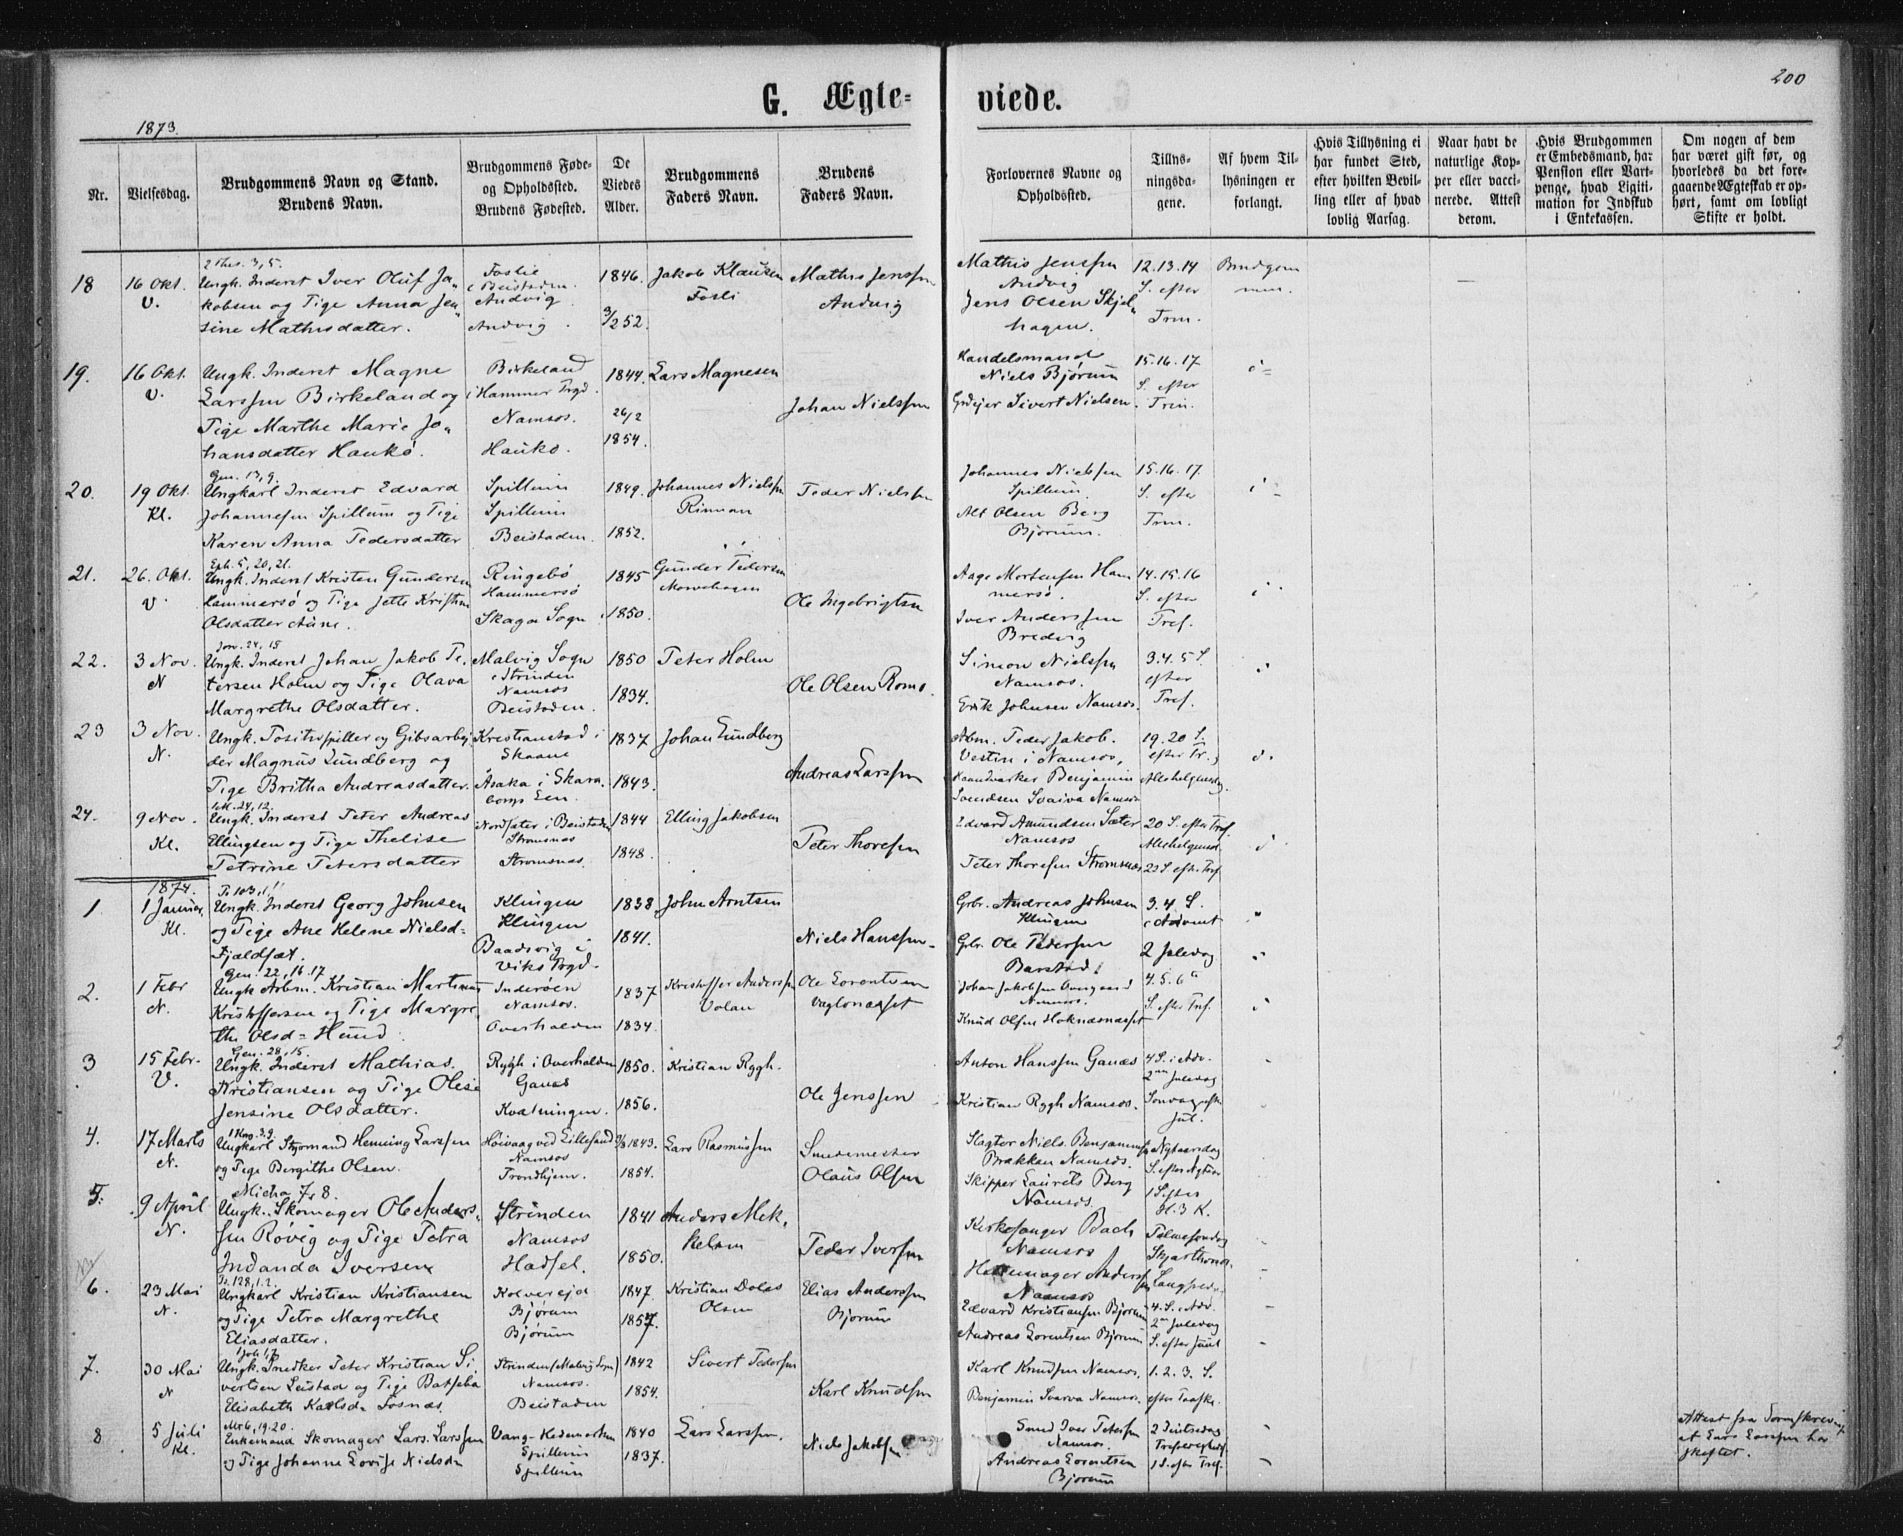 200
G. Ægte-viede.
1873.
Nr.
Vielsesdag.
Brudgommens Navn og Stand.
Brudens Navn.
Brudgommens Føde-
og Opholdssted.
Brudens Fødested.
De
Viedes
Alder.
Brudgommens
Faders Navn.
Brudens
Faders Navn.
Forlovernes Navne og
Opholdssted.
Tillys-
ningsda-
gene.
Af hvem Til-
lysningen er
forlangt.
Hvis Tillysning ei
har fundet Sted,
efter hvilken Bevil-
ling eller af hvad
lovlig Aarsag.
Naar havt de
naturlige Kop-
per eller vacci-
nerede. Attest
derom.
Hvis Brudgommen
er Embedsmand, har
Pension eller Vart-
penge, hvad Legiti-
mation for Indskud
i Enkekassen.
Om nogen af dem
har været gift før, og
hvorledes da det fore-
gaaende Ægteskab er op-
hørt, samt om lovligt
Skifte er holdt.
18
16 Okt.
V.
2 Thes. 3,5.
Ungk. Inderst Iver Oluf Ja-
kobsen og Pige Anna Jen-
sine Mathisdatter.
Foslie
i Beistaden.
Andvig
Andvig.
1846.
3/2 52.
Jakob Klausen
Fosli
Mathis Jenssen
Andvig
Mathis Jenssen
Andvig
Jens Olsen Skjel-
hagen.
12.13.14
S. efter
Trin.
Brudgom-
men.
19.
16 Okt.
V.
Ungk. Inderst Magne
Larssen Birkeland og
Pige Marthe Marie Jo-
hansdatter Haukø.
Birkeland
i Hammer Prgd.
Namsos.
Haukø.
1844.
26/2
1854.
Lars Magnesen
Johan Nielssen
Handelsmand
Niels Bjørum
Grdejer Sivert Nielsen.
15.16.17
S. efter
Trin.
20.
19 Okt.
Kl.
Gen. 13,9.
Ungkarl Inderst Edvard
Johannesen Spillum og Pige
Karen Anna Pedersdatter
Spillum
Spillum
Beistaden.
1849.
1852.
Johannes Nielssen
Rinnan
Peder Nielssen
Johannes Nielssen
Spillum
Alt Olsen Berg
Bjørum.
15.16.17.
S. efter
Trin.
21.
26. Okt.
V
Eph. 5, 20, 21.
Ungk. Inderst Kristen Gundersen
Hammersø og Pige Jette Kristine
Olsdatter Aune.
Ringebø
Hammersø
Skage Sogn
1845
1850.
Gunder Pedersen
Ole Ingebrigtsen
Aage Mortensen Ham-
mersø.
Iver Anderssen
Bredvig
14.15.16
S. efter
Tref.
22.
3 Nov.
N
Jos. 24, 15
Ungk. Inderst Johan Jakob Pe-
tersen Holm og Pige Olava
Margrethe Olsdatter.
Malvig Sogn
i Strinden
Namsos
Beistaden.
1850
1834.
Peter Holm
Ole Olsen Romo.
Simon Nielssen
Namsos.
Erik Johnsen Namsos.
3.4.5 S.
efter
Tref.
23
3 Nov.
N.
Ungk. Positivspiller og Gibsarbej-
der Magnus Lundberg og
Pige Britha Andreasdatter.
Kristianstad i
Skaane
Åsaka i Skara
borgs Len.
1837
1843.
Johan Lundberg
Andreas Larssen
Arbm. Peder Jakob.
Vestin i Namsos,
Haandværker Benjamin
Svendsen Svaiva Namsos
19.20 S.
efter Tr.
Allehelgensdg.
24.
9 Nov.
Kl.
Ungk. Inderst Peter Andreas
Ellingsen og Pige Thelise
Petrine Petersdatter
Nordsæter i Beistaden
Strømsnæs
Strømsnæs.
1844
1848.
Elling Jakobsen
Peter Thoresen
Edvard Amundsen Sæter
Namsos
Peter Thoresen Strømsnæs
20 S. efter Tref.
Allehelgensd.
22 S. efter Tref
1874.
1
1 Januar
Kl.
Ps. 103,1.
Ungk. Inderst Georg Johnsen
og Pige Ane Helene Nielsd-
Fjældsæt.
Klingen
Klingen
Baadsvig i
Viks Prgd.
1838
1841.
John Arntsen
Niels Hanssen
Grbr. Andreas Johnsen
Klingen
Grbr. Ole Pedersen
Barstad
3.4. S.
i Advent
2 Juledag
2.
1 Febr
N.
Gen. 22, 16. 17
Ungk Arbm. Kristian Martinus
Kristoffersen og Pige Margre-
the Olsd- Hund
Inderøen
Namsos.
Overhalden
1837
1834.
Kristoffer Anderssen
Volan
Ole Lorentsen
Johan Jakobsen
Namsos.
Knud Olsen Hoknæsnæsset
4.5.6
S. efter Tref.
3
15 Febr.
V.
Gen. 28,15.
Ungk. Inderst Mathias
Kristiansen og Pige Olise
Jensine Olsdatter.
Rygh i Overhalden
Ganæs
Kvatningen.
1850.
1856.
Kristian Rygh.
Ole Jenssen
Anton Hanssen Ganæs
Kristian Rygh Namsos.
4 S. i Adv.
2den Juledag
Søndag efter
Jul.
4.
17 Marts
N.
1 Kong. 3.9.
Ungkarl Styrmand Henning Larssen
og Pige Bergithe Olsen.
Høivaag ved Lillesand
Namsos
Trondhjem.
1843.
1854.
Lars Rasmussen
Smedemester
Olaus Olsen
Slagter Niels Benjaminsen
Brækken Namsos.
Skipper Laurits Berg
Namsos
Nytaarsdag
S. efter Nytaar
1 S. efter
Hl. 3 K.
5.
9 April
N.
Micha 7, 8.
Ungk. Skomager Ole Anders-
sen Røvig og Pige Petra
Indanda Iversen
Strinden
Namsos
Hadsel.
1841
1850.
Anders Mik-
kelsen
Peder Iversen
Kirkesanger Bach
Namsos
Namsos
Palmesøndag
Skjærthorsd.
Langfred.
6.
23 Mai
N.
Ps. 128,1.2.
Ungkarl Kristian Kristiansen
og Pige Petra Margrethe
Eliasdatter.
Kolvereid
Bjørum
Bjørum
1847.
1857.
Kristian Dolas
Olsen
Elias Anderssen
Bjørum
Edvard Kristiansen Bjørum
Andreas Lorentsen Bjørum
4. S. i Adv.
2den Juledag
S. efter Juul
7.
30 Mai
N
Ungk. Snedker Peter Kristian Si-
vertsen Leistad og Pige Batseba
Elisabeth Karlsd. Fosnæs.
Strinden (Malvig Sogn)
Namsos.
Beistaden
1842
1854.
Sivert Pedersen
Karl Knudsen
Karl Knudsen Namsos.
Benjamin Svarva Namsos.
1.2.3. S.
efter Paaske.
8
5 Juli
Kl.
Enkemand Skomager Lars Larssen
og Pige Johanne Lovise Nielsdr
Vang-Hedemarken
Spillum
Spillum
1840
1837.
Lars Larssen.
Niels Jakobsen
Smed Iver Petersen
Namsos.
Andreas Lorentsen
Bjørum
2 Pintsedag
1 S. efter Tref.
Attest fra Sorenskriver
at Lars Larssen har
skiftet.